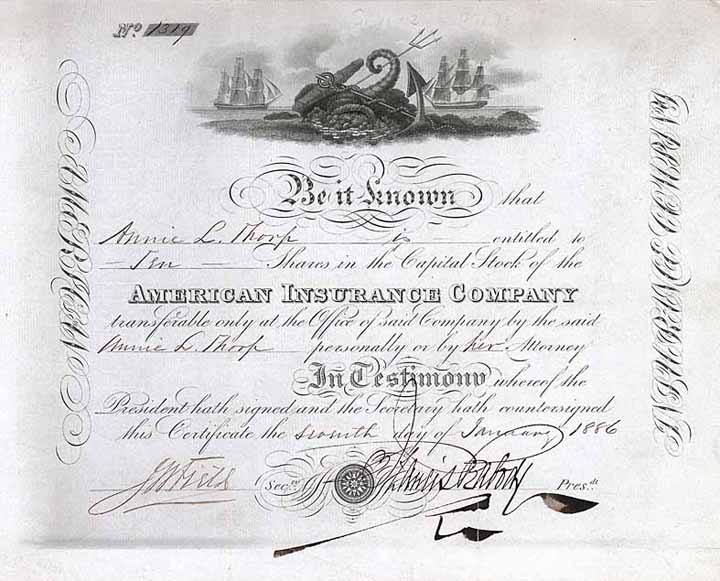 No 1319
Be it Known that
Annie L. Thorp is entitled to
Ten Shares in the Capital Stock of the
AMERICAN INSURANCE COMPANY
transferable only at the Office of said Company by the said
Annie L. Thorp personally or by her Attorney
In Testimony whereof the
President hath signed and the Secretary hath countersigned
this Certificate the seventh day of January 1886
Secry Francis Peabody Presdt